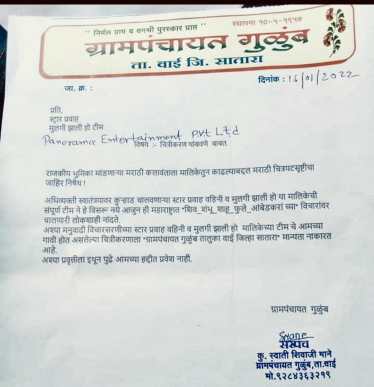 " निर्मल ग्राम व वनश्री पुरस्कार प्राप्त "
स्थापना १०-९-१९५७
ग्रामपंचायत गुळुंब
ता. वाई जि. सातारा
जा. क्र. :
दिनांक : 16/01/2022
प्रति,
स्टार प्रवाह
मुलगी झाली हो टीम
Panorama Entertainment Pvt Ltd
विषय :- चित्रीकरण थांबवणे बाबत
राजकीय भुमिका मांडणाऱ्या मराठी कलावंताला मालिकेतुन काढल्याबद्दल मराठी चित्रपटसृष्टीचा
जाहिर निषेध !
अभिव्यक्ती स्वातंत्र्यावर कुऱ्हाड चालवणाऱ्या स्टार प्रवाह वहिनी व मुलगी झाली हो या मालिकेची
संपूर्ण टीम ने हे विसरू नये आजुन ही महाराष्ट्रात "शिव_शंभू_शाहू_फुले_आंबेडकरां च्या" विचारांवर
चालणारी लोकशाही नांदते.
अश्या मनुवादी विचारसरणीच्या स्टार प्रवाह वहिनी व मुलगी झाली हो मालिकेच्या टीम चे आमच्या
गावी होत असलेल्या चित्रीकरणाला "ग्रामपंचायत गुळुंब तालुका वाई जिल्हा सातारा" मान्यता नाकारत
आहे.
अश्या प्रवृत्तीला इथून पुढे आमच्या हद्दीत प्रवेश नाही.
ग्रामपंचायत गुळुंब
सरपंच
कु. स्वाती शिवाजी माने
ग्रामपंचायत गुळुंब,ता.वाई
मो.९२८४३६३२१९